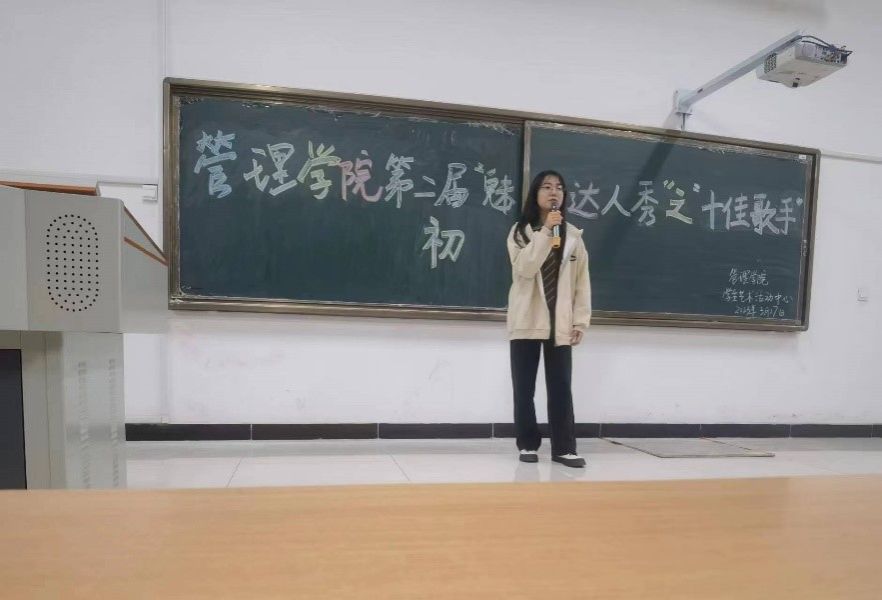 管理学院第二届"魅达人秀"之"十佳歌手"
初
管理学院
学生艺术活动中心
2023年3月17日